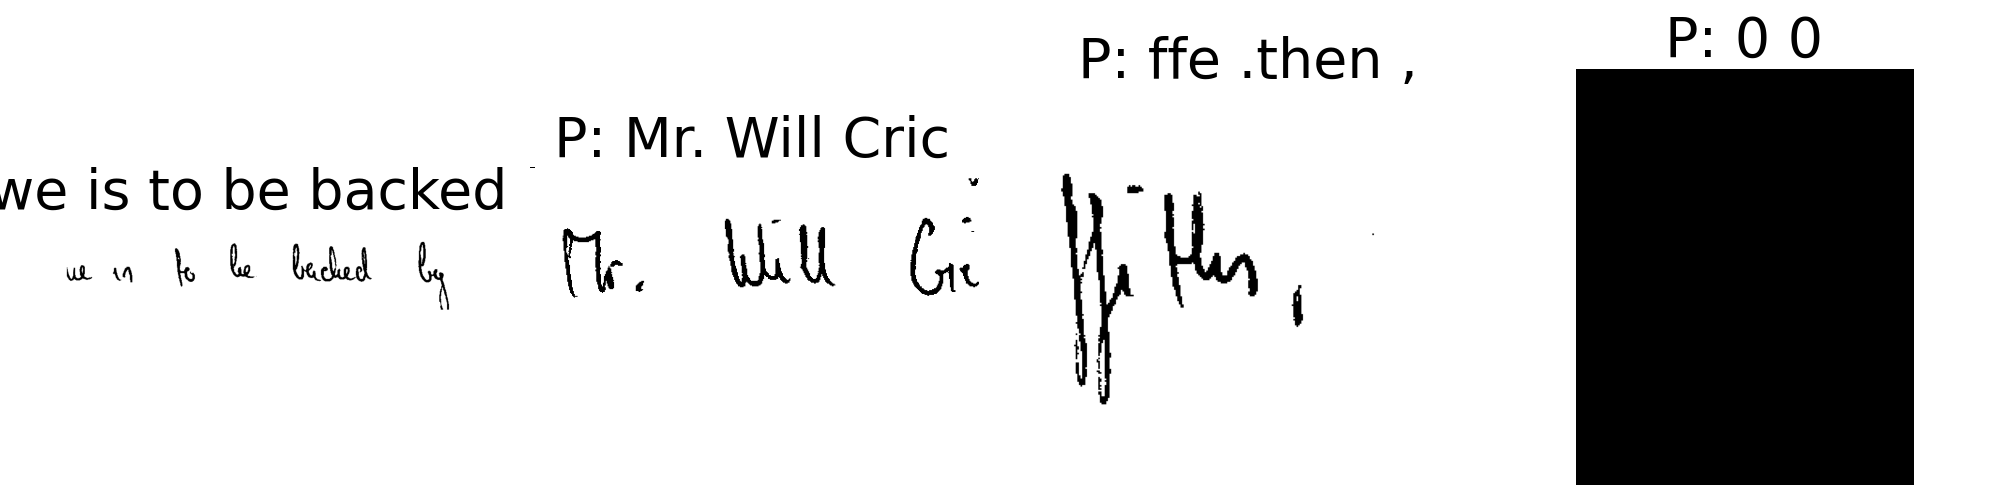 we is to be backed
we in to be backed by
P: Mr. Will Cric
Mr. Will Gri
P: ffe .then ,
,
P: 0 0